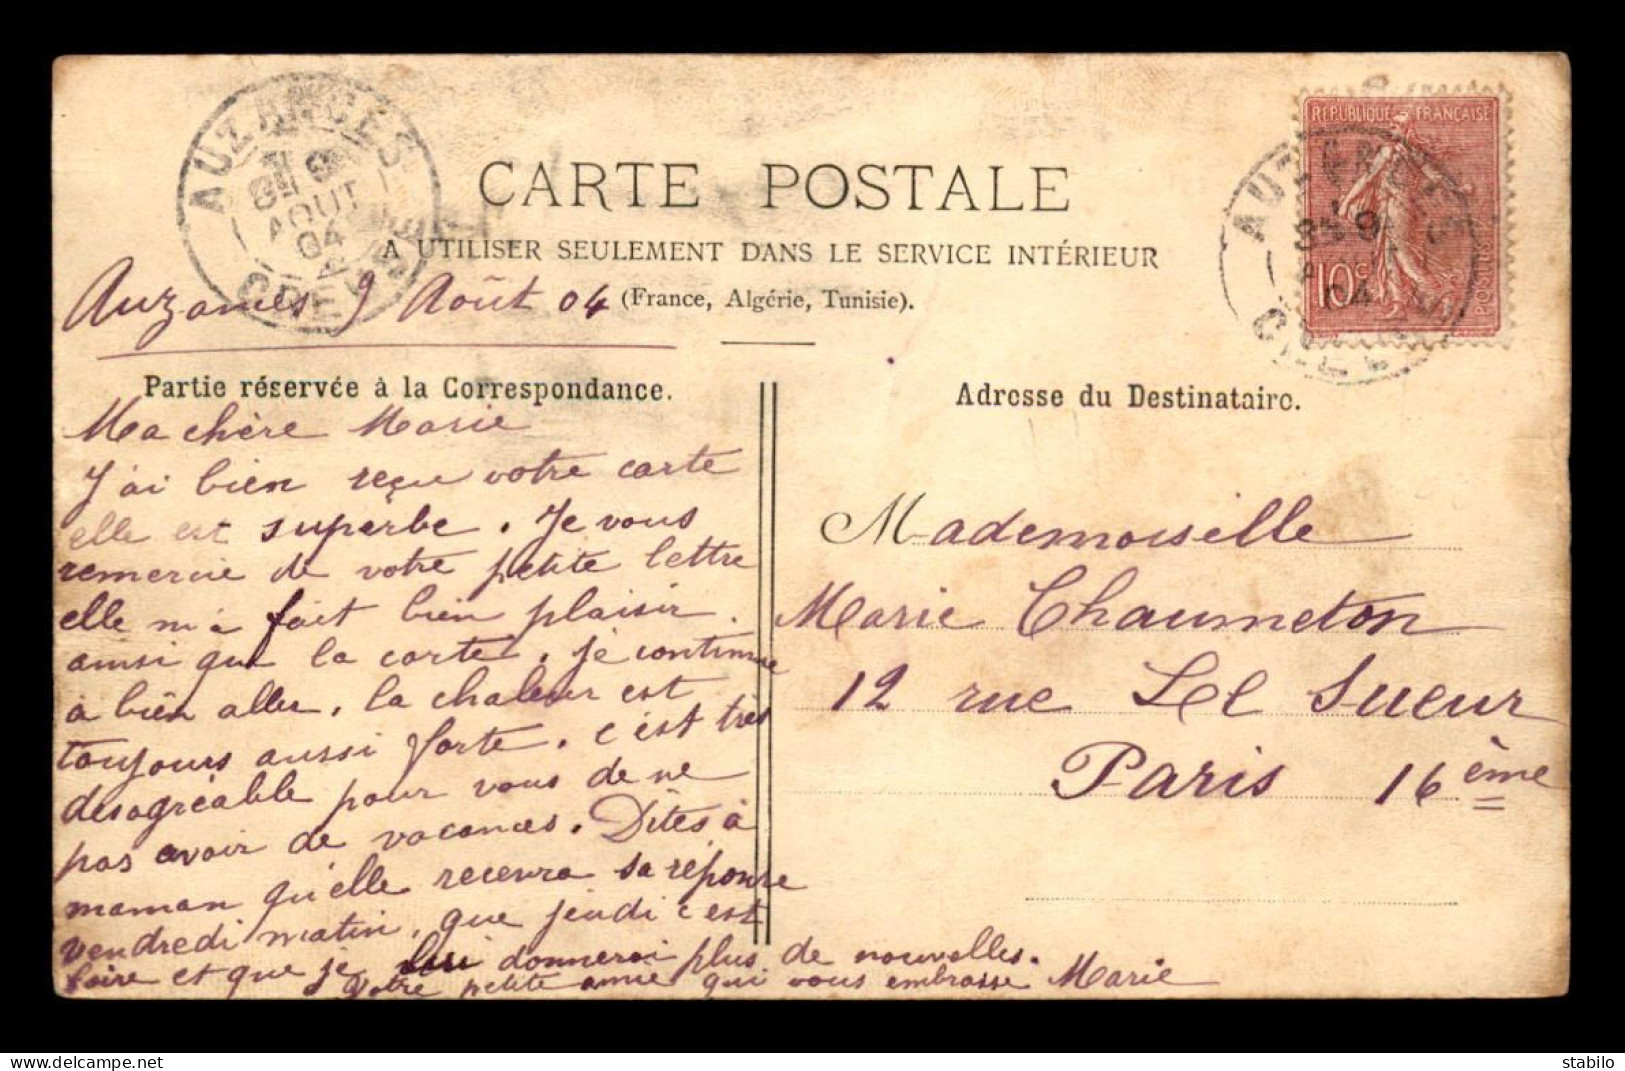 AUZANCES
9
AOUT
04
CREUSE
CARTE POSTALE
A UTILISER SEULEMENT DANS LE SERVICE INTÉRIEUR
(France, Algérie, Tunisie).
Auzances 9 Août 04
REPUBLIQUE FRANÇAISE
10c
POSTES
9
04
Partie réservée à la Correspondance.
Ma chère Marie
J'ai bien reçu votre carte
elle est superbe. Je vous
remercie de votre petite lettre
elle m'a fait bien plaisir
ainsi que la carte. je continue
à bien aller, la chaleur est
toujours aussi forte. c'est très
désagréable pour vous de ne
pas avoir de vacances. Dites à
maman qu'elle recevra sa réponse
vendredi matin, que jeudi c'est
foire et que je lui donnerai plus de nouvelles.
Votre petite amie qui vous embrasse Marie
Adresse du Destinataire.
Mademoiselle
Marie Chaumeton
12 rue Le Sueur
Paris 16ème
stabilo